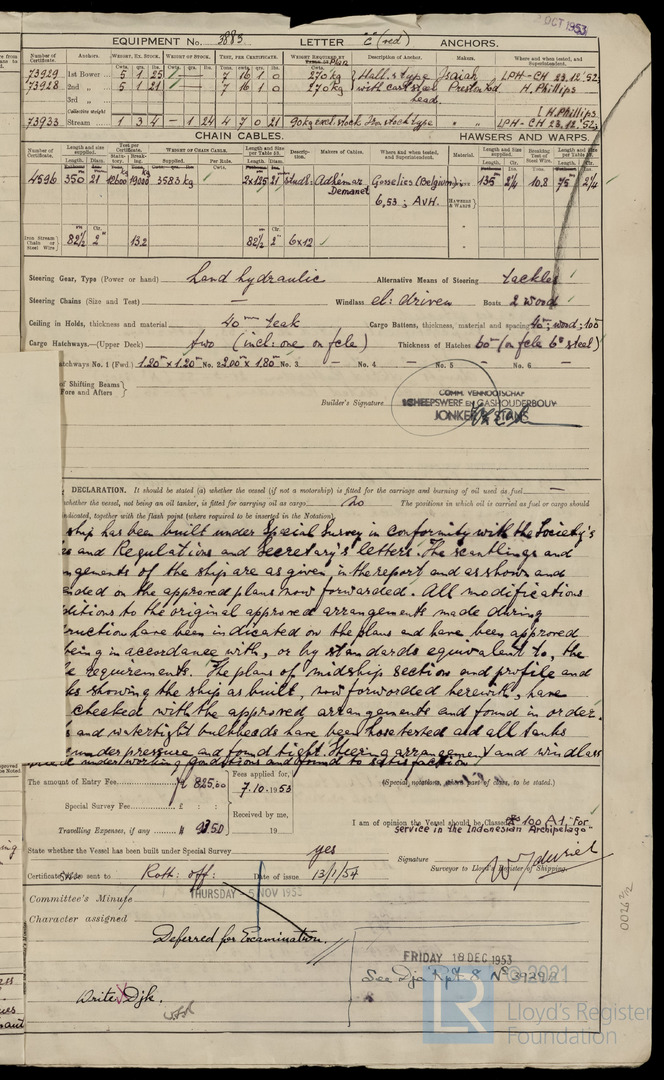 2 OCT 1953
EQUIPMENT No. 3883 LETTER "c" (red) ANCHORS.
Number of Certificate. Anchors. WEIGHT, EX. STOCK. WEIGHT OF STOCK. TEST, PER CERTIFICATE. WEIGHT REQUIRED Description of Anchor. Makers. Where and when tested, and Superintendent.
73929 1st Bower 5 1 25 7 16 1 0 270 kg Hall's type Isaiah LPH-CH 23.12.52
73928 2nd " 5 1 21 7 16 1 0 270 kg with cast steel Preston Ltd H. Phillips
3rd " head.
H. Phillips
73933 Stream 1 3 4 - 1 24 4 7 0 21 90 kg excl. stock Iron stock type " LPH-CH 23.12.52
CHAIN CABLES. HAWSERS AND WARPS.
Number of Certificate. Length and size supplied. Test per Certificate. WEIGHT OF CHAIN CABLE. Length and Size per Table 53. Description. Makers of Cables. Where and when tested, and Superintendent. Material. Length and Size supplied. Breaking Test of Steel Wire.
4596 350 21 12600 kg 19000 kg 3583 kg 2x125 21 studl. Adhémar Gosselies (Belgium) 135 2¼ 10.8 75 2¼
Demanet 6.53 ; AvH. HAWSERS & WARPS
Iron Stream Chain or Steel Wire 82½ 2" 13.2 82½ 2" 6x12
Steering Gear, Type (Power or hand) hand hydraulic Alternative Means of Steering tackles
Steering Chains (Size and Test) — Windlass el: driven Boats 2 wood
Ceiling in Holds, thickness and material 40 mm teak Cargo Battens, thickness, material and spacing 40 ; wood ; 100
Cargo Hatchways.—(Upper Deck) two (incl: one on fcle) Thickness of Hatches 60 (on fcle 6 steel)
atchways No. 1 (Fwd.) 1.20 x 1.20 No. 2 2.00 x 1.80 No. 3 — No. 4 — No. 5 — No. 6 —
of Shifting Beams
Fore and Afters
Builder's Signature
COMM. VENNOOTSCHAP
SCHEEPSWERF EN GASHOUDERBOUW
JONKER & STANS
DECLARATION. It should be stated (a) whether the vessel (if not a motorship) is fitted for the carriage and burning of oil used as fuel —
whether the vessel, not being an oil tanker, is fitted for carrying oil as cargo no The positions in which oil is carried as fuel or cargo should
indicated, together with the flash point (where required to be inserted in the Notation).
ship has been built under Special Survey in conformity with the Society's
and Regulations and Secretary's letters. The scantlings and
ngements of the ship are as given in the report and as shown and
nded on the approved plans now forwarded. All modifications
ditions to the original approved arrangements made during
ruction have been indicated on the plans and have been approved
being in accordance with, or by standards equivalent to, the
requirements. The plans of midship section and profile and
ks showing the ship as built, now forwarded herewith, have
checked with the approved arrangements and found in order.
and watertight bulkheads have been hose tested and all tanks
under pressure and found tight. Steering arrangement and windlass
under working conditions and found to satisfaction.
The amount of Entry Fee f 825.00 Fees applied for, (Special notations, part of class, to be stated.)
7.10.1953
Special Survey Fee £ : : Received by me,
I am of opinion the Vessel should be Classed 100 A1 "For
Travelling Expenses, if any 93.50 19 service in the Indonesian Archipelago"
State whether the Vessel has been built under Special Survey yes
Signature
Surveyor to Lloyd's Register of Shipping.
Certificate sent to Rott: off: Date of issue 13/1/54
Committee's Minute THURSDAY 5 NOV 1953
Character assigned
Deferred for Examination.
FRIDAY 18 DEC 1953
See Dja Rpt 8 No
Write Djk.
0026
© 2021
LR
Lloyd's Register
Foundation